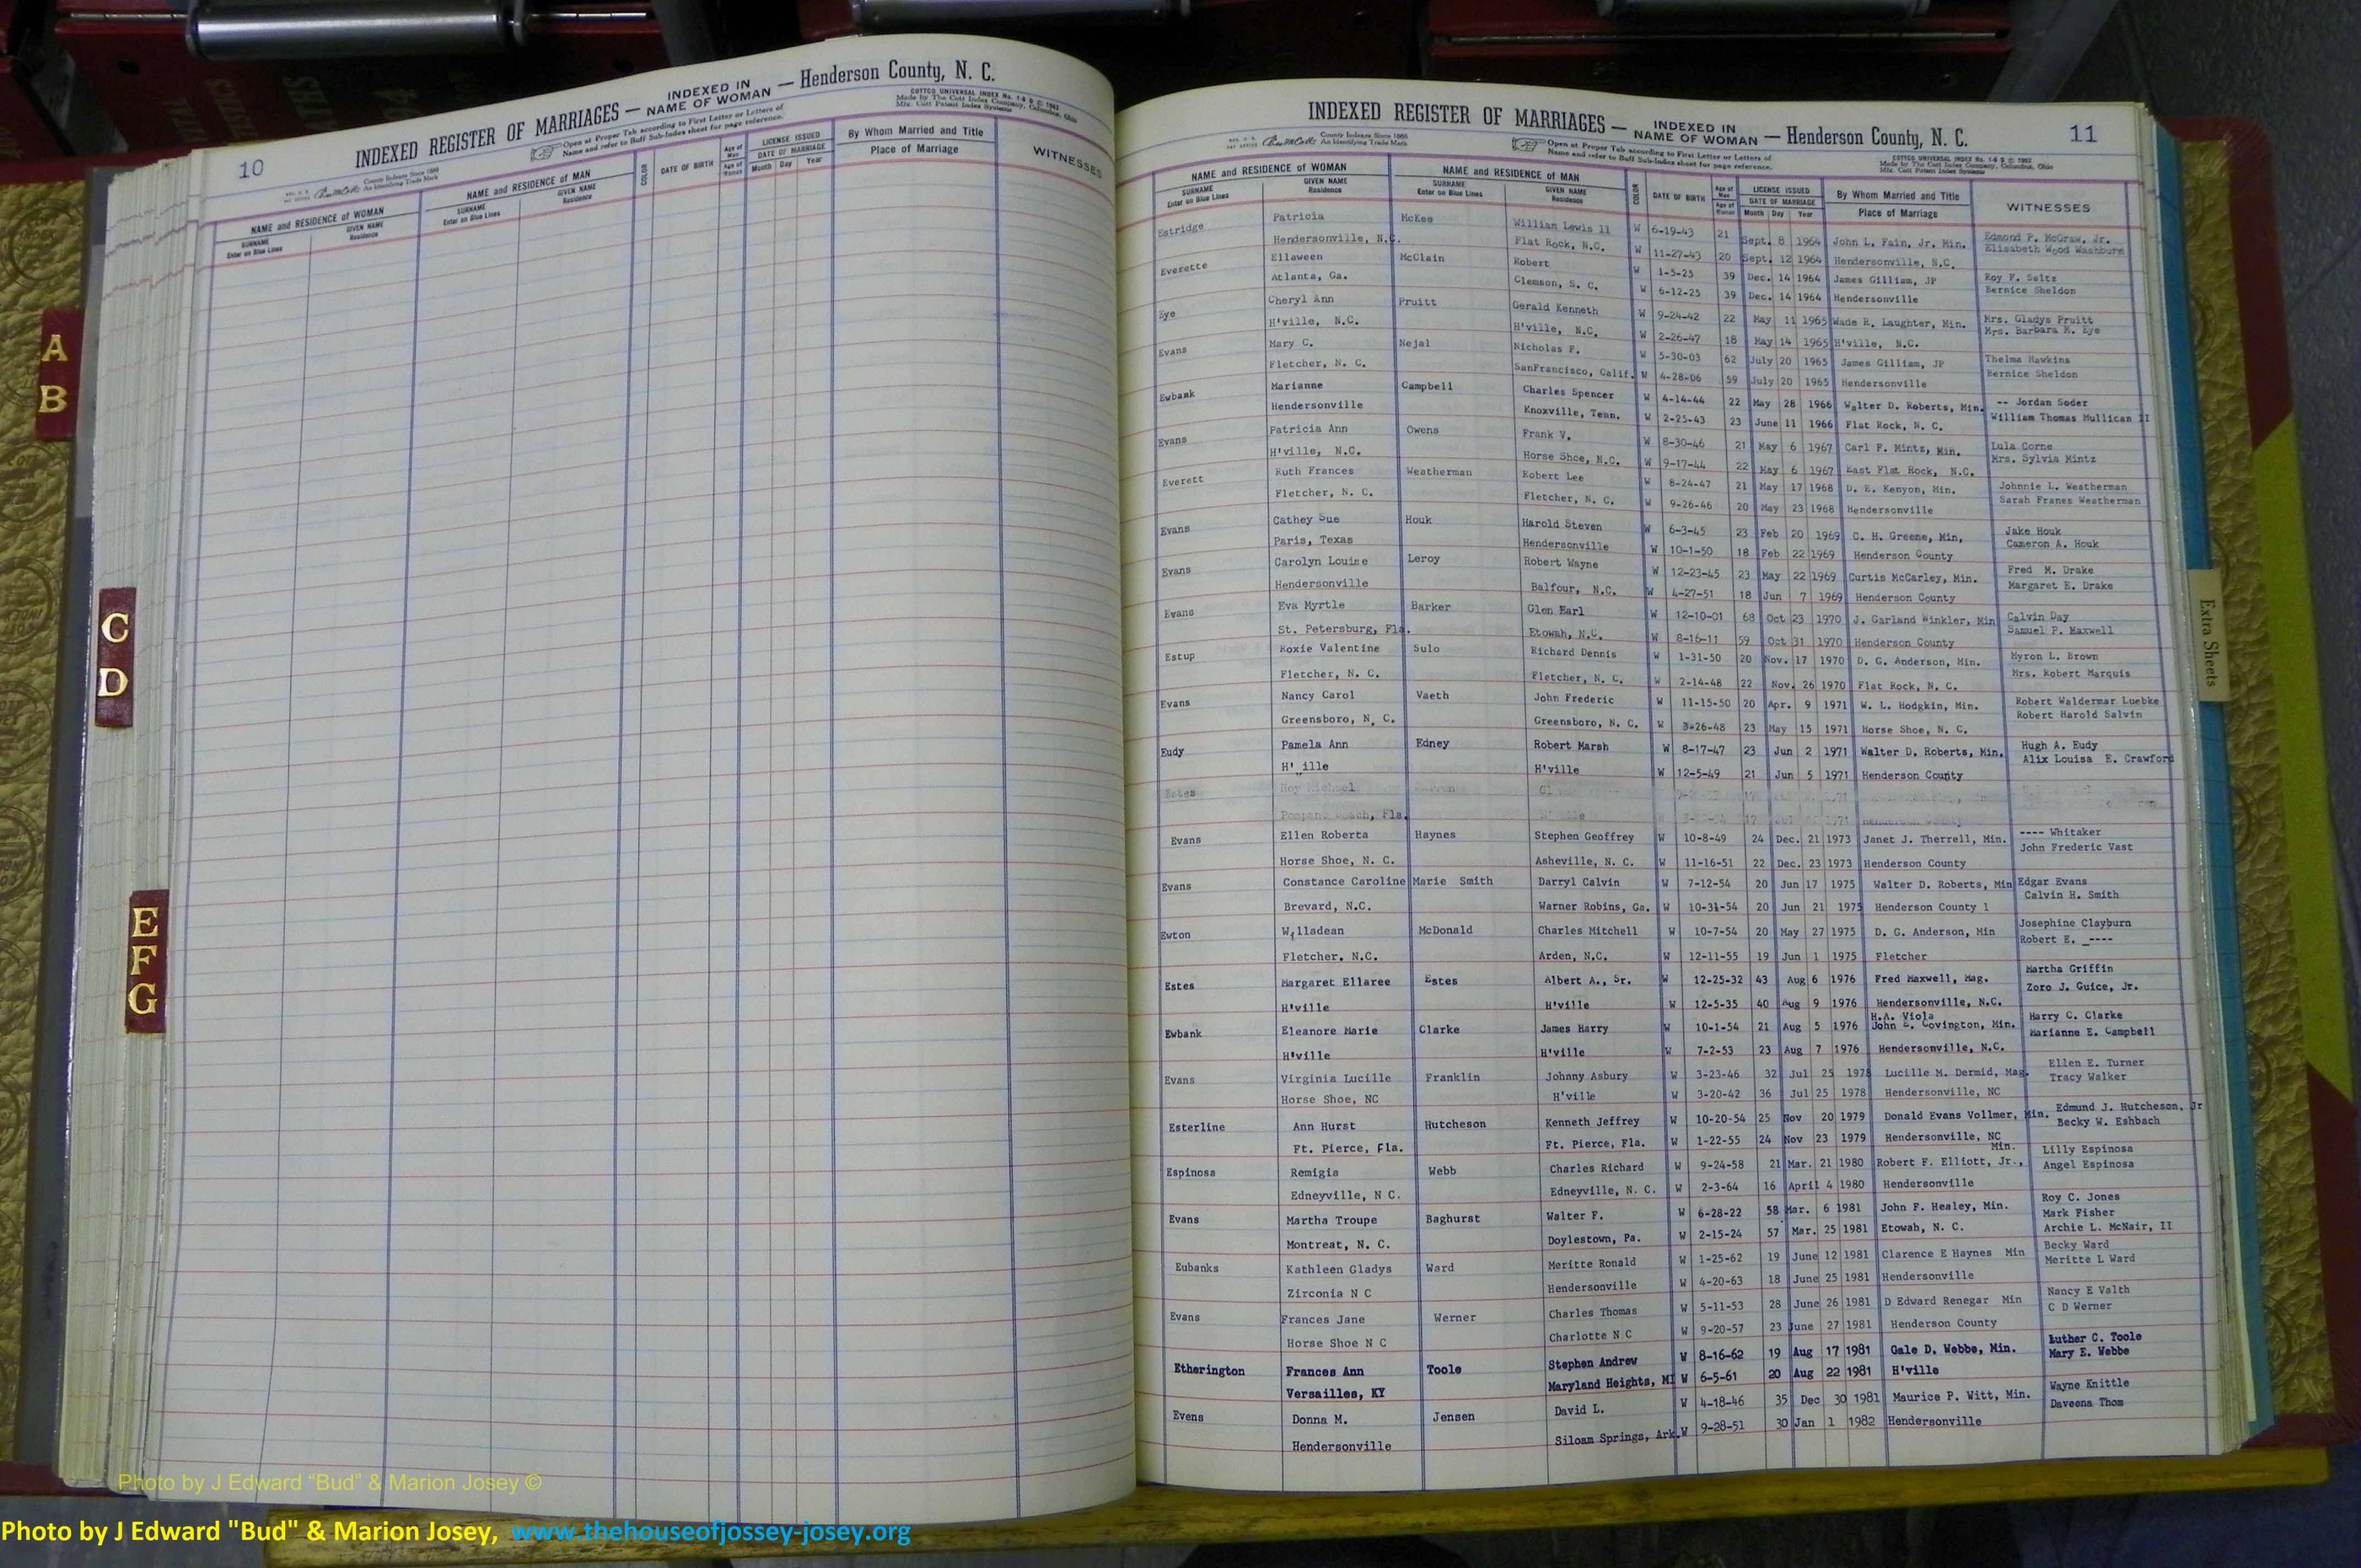 10
INDEXED REGISTER OF MARRIAGES — INDEXED IN NAME OF WOMAN — Henderson County, N. C.
Open at Proper Tab according to First Letter or Letters of
Name and refer to Buff Sub-Index sheet for page reference.
COTTCO UNIVERSAL INDEX
Made by The Cott Index Company, Columbus, Ohio
Mfr. Cott Patent Index Systems
County Indexes Since 1888
An Identifying Trade Mark
NAME and RESIDENCE of WOMAN NAME and RESIDENCE of MAN COLOR DATE OF BIRTH Age of Man LICENSE ISSUED By Whom Married and Title WITNESSES
SURNAME GIVEN NAME SURNAME GIVEN NAME Age of Woman DATE OF MARRIAGE Place of Marriage
Enter on Blue Lines Residence Enter on Blue Lines Residence Month Day Year
A
B
C
D
E
F
G
11
INDEXED REGISTER OF MARRIAGES — INDEXED IN NAME OF WOMAN — Henderson County, N. C.
County Indexes Since 1888
An Identifying Trade Mark
Open at Proper Tab according to First Letter or Letters of
Name and refer to Buff Sub-Index sheet for page reference.
COTTCO UNIVERSAL INDEX
Made by The Cott Index Company, Columbus, Ohio
Mfr. Cott Patent Index Systems
NAME and RESIDENCE of WOMAN NAME and RESIDENCE OF MAN COLOR DATE OF BIRTH Age of Man LICENSE ISSUED By Whom Married and Title WITNESSES
SURNAME GIVEN NAME SURNAME GIVEN NAME Age of Woman DATE OF MARRIAGE Place of Marriage
Enter on Blue Lines Residence Enter on Blue Lines Residence Month Day Year
Estridge Patricia McKee William Lewis ll W 6-19-43 21 Sept. 8 1964 John L. Fain, Jr. Min. Edmond P. McGraw, Jr.
Hendersonville, N.C. Flat Rock, N.C. W 11-27-43 20 Sept. 12 1964 Hendersonville, N.C. Elisabeth Wood Washburn
Everette Ellaween McClain Robert W 1-5-25 39 Dec. 14 1964 James Gilliam, JP Roy F. Seltz
Atlanta, Ga. Clemson, S. C. W 6-12-25 39 Dec. 14 1964 Hendersonville Bernice Sheldon
Eye Cheryl Ann Pruitt Gerald Kenneth W 9-24-42 22 May 11 1965 Wade R. Laughter, Min. Mrs. Gladys Pruitt
H'ville, N.C. H'ville, N.C. W 2-26-47 18 May 14 1965 H'ville, N.C. Mrs. Barbara M. Eye
Evans Mary C. Nejal Nicholas F. W 5-30-03 62 July 20 1965 James Gilliam, JP Thelma Hawkins
Fletcher, N. C. SanFrancisco, Calif. W 4-28-06 59 July 20 1965 Hendersonville Bernice Sheldon
Ewbank Marianne Campbell Charles Spencer W 4-14-44 22 May 28 1966 Walter D. Roberts, Min. -- Jordan Soder
Hendersonville Knoxville, Tenn. W 2-25-43 23 June 11 1966 Flat Rock, N. C. William Thomas Mullican II
Evans Patricia Ann Owens Frank V. W 8-30-46 21 May 6 1967 Carl F. Mintz, Min. Lula Corne
H'ville, N.C. Horse Shoe, N.C. W 9-17-44 22 May 6 1967 East Flat Rock, N.C. Mrs. Sylvia Mintz
Everett Ruth Frances Weatherman Robert Lee W 8-24-47 21 May 17 1968 D. E. Kenyon, Min. Johnnie L. Weatherman
Fletcher, N. C. Fletcher, N. C. W 9-26-46 20 May 23 1968 Hendersonville Sarah Franes Weatherman
Evans Cathey Sue Houk Harold Steven W 6-3-45 23 Feb 20 1969 C. H. Greene, Min, Jake Houk
Paris, Texas Hendersonville W 10-1-50 18 Feb 22 1969 Henderson County Cameron A. Houk
Evans Carolyn Louise Leroy Robert Wayne W 12-23-45 23 May 22 1969 Curtis McCarley, Min. Fred M. Drake
Hendersonville Balfour, N.C. W 4-27-51 18 Jun 7 1969 Henderson County Margaret E. Drake
Evans Eva Myrtle Barker Glen Earl W 12-10-01 68 Oct 23 1970 J. Garland Winkler, Min Calvin Day
St. Petersburg, Fla. Etowah, N.C. W 8-16-11 59 Oct 31 1970 Henderson County Samuel P. Maxwell
Estup Roxie Valentine Sulo Richard Dennis W 1-31-50 20 Nov. 17 1970 D. G. Anderson, Min. Myron L. Brown
Fletcher, N. C. Fletcher, N. C. W 2-14-48 22 Nov. 26 1970 Flat Rock, N. C. Mrs. Robert Marquis
Evans Nancy Carol Vaeth John Frederic W 11-15-50 20 Apr. 9 1971 W. L. Hodgkin, Min. Robert Waldermar Luebke
Greensboro, N. C. Greensboro, N. C. W 3-26-48 23 May 15 1971 Horse Shoe, N. C. Robert Harold Salvin
Eudy Pamela Ann Edney Robert Marsh W 8-17-47 23 Jun 2 1971 Walter D. Roberts, Min. Hugh A. Eudy
H' ille H'ville W 12-5-49 21 Jun 5 1971 Henderson County Alix Louisa E. Crawford
Estes Roy Michael
Pompano Beach, Fla.
Evans Ellen Roberta Haynes Stephen Geoffrey W 10-8-49 24 Dec. 21 1973 Janet J. Therrell, Min. ---- Whitaker
Horse Shoe, N. C. Asheville, N. C. W 11-16-51 22 Dec. 23 1973 Henderson County John Frederic Vast
Evans Constance Caroline Marie Smith Darryl Calvin W 7-12-54 20 Jun 17 1975 Walter D. Roberts, Min Edgar Evans
Brevard, N.C. Warner Robins, Ga. W 10-31-54 20 Jun 21 1975 Henderson County l Calvin H. Smith
Ewton Willadean McDonald Charles Mitchell W 10-7-54 20 May 27 1975 D. G. Anderson, Min Josephine Clayburn
Fletcher, N.C. Arden, N.C. W 12-11-55 19 Jun 1 1975 Fletcher Robert E. _----
Estes Margaret Ellaree Estes Albert A., Sr. W 12-25-32 43 Aug 6 1976 Fred Maxwell, Mag. Martha Griffin
H'ville H'ville W 12-5-35 40 Aug 9 1976 Hendersonville, N.C. Zoro J. Guice, Jr.
H.A. Viola
Ewbank Eleanore Marie Clarke James Harry W 10-1-54 21 Aug 5 1976 John E. Covington, Min. Harry C. Clarke
H'ville H'ville W 7-2-53 23 Aug 7 1976 Hendersonville, N.C. Marianne E. Campbell
Evans Virginia Lucille Franklin Johnny Asbury W 3-23-46 32 Jul 25 1978 Lucille M. Dermid, Mag. Ellen E. Turner
Horse Shoe, NC H'ville W 3-20-42 36 Jul 25 1978 Hendersonville, NC Tracy Walker
Esterline Ann Hurst Hutcheson Kenneth Jeffrey W 10-20-54 25 Nov 20 1979 Donald Evans Vollmer, Min. Edmund J. Hutcheson, Jr
Ft. Pierce, Fla. Ft. Pierce, Fla. W 1-22-55 24 Nov 23 1979 Hendersonville, NC Becky W. Eshbach
Min.
Espinosa Remigia Webb Charles Richard W 9-24-58 21 Mar. 21 1980 Robert F. Elliott, Jr., Lilly Espinosa
Edneyville, N C. Edneyville, N. C. W 2-3-64 16 April 4 1980 Hendersonville Angel Espinosa
Evans Martha Troupe Baghurst Walter F. W 6-28-22 58 Mar. 6 1981 John F. Healey, Min. Roy C. Jones
Mark Fisher
Montreat, N. C. Doylestown, Pa. W 2-15-24 57 Mar. 25 1981 Etowah, N. C. Archie L. McNair, II
Eubanks Kathleen Gladys Ward Meritte Ronald W 1-25-62 19 June 12 1981 Clarence E Haynes Min Becky Ward
Zirconia N C Hendersonville W 4-20-63 18 June 25 1981 Hendersonville Meritte L Ward
Evans Frances Jane Werner Charles Thomas W 5-11-53 28 June 26 1981 D Edward Renegar Min Nancy E Valth
Horse Shoe N C Charlotte N C W 9-20-57 23 June 27 1981 Henderson County C D Werner
Etherington Frances Ann Toole Stephen Andrew W 8-16-62 19 Aug 17 1981 Gale D. Webbe, Min. Luther C. Toole
Versailles, KY Maryland Heights, MI W 6-5-61 20 Aug 22 1981 H'ville Mary E. Webbe
Evens Donna M. Jensen David L. W 4-18-46 35 Dec 30 1981 Maurice P. Witt, Min. Wayne Knittle
Hendersonville Siloam Springs, Ark. W 9-28-51 30 Jan 1 1982 Hendersonville Daveena Thom
Extra Sheets
Photo by J Edward “Bud” & Marion Josey ©
Photo by J Edward "Bud" & Marion Josey, www.thehouseofjossey-josey.org